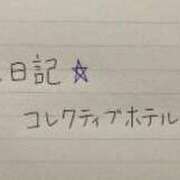 日記☆
コレクティブホテル